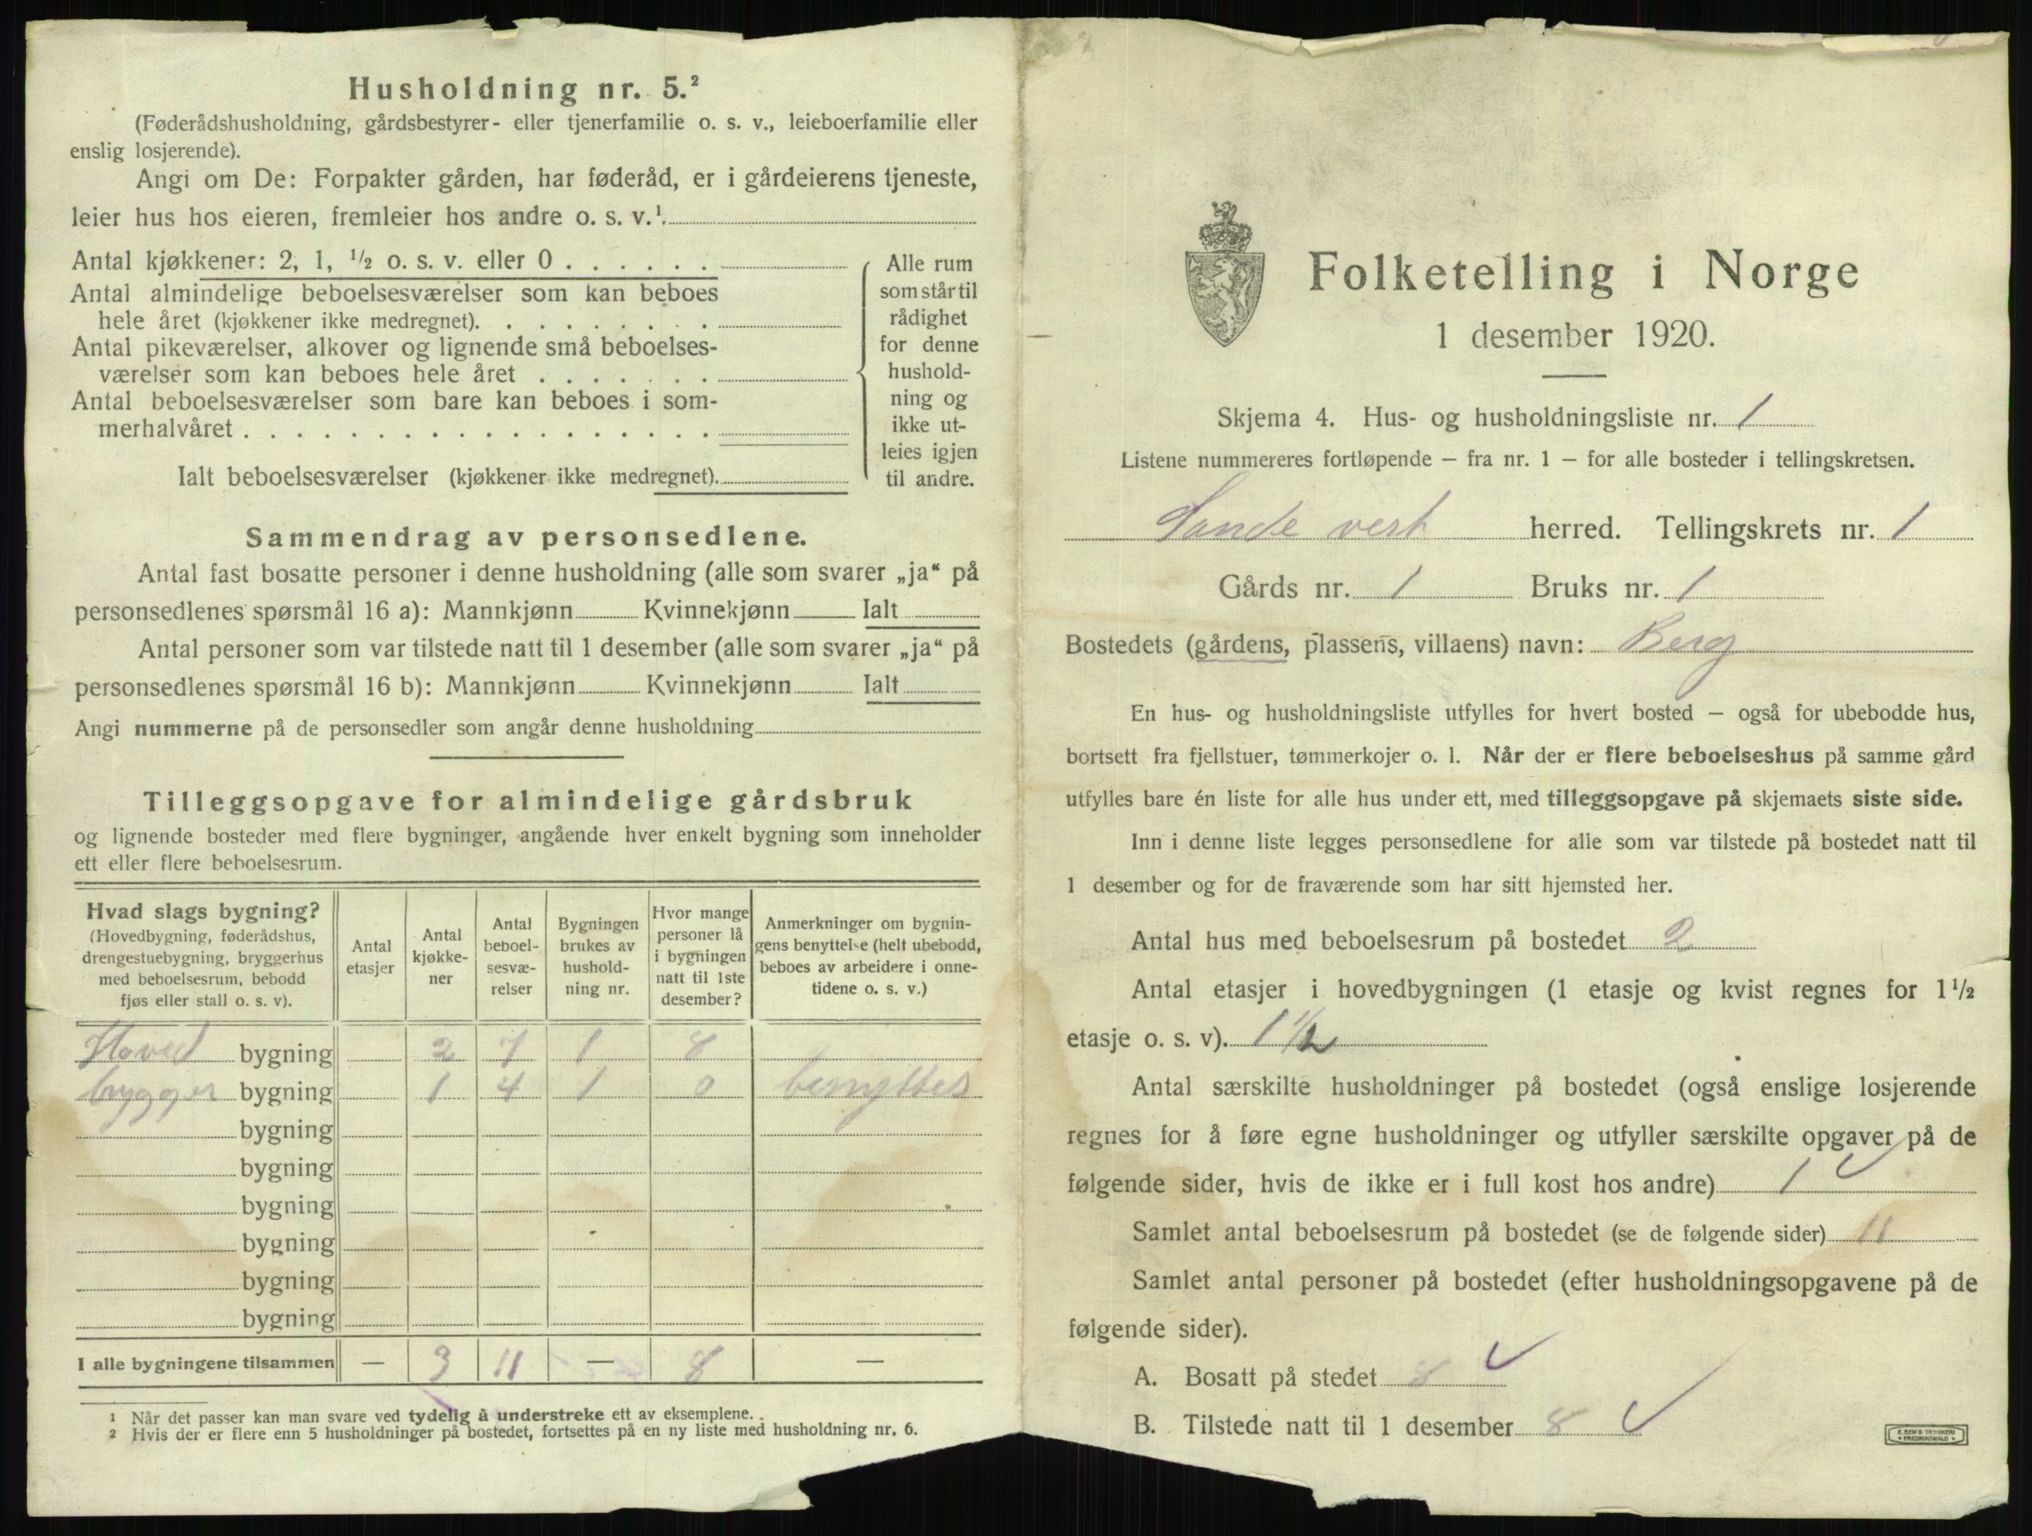 Husholdning nr. 5.²
(Føderådshusholdning, gårdsbestyrer- eller tjenerfamilie o. s. v., leieboerfamilie eller
enslig losjerende).
Angi om De: Forpakter gården, har føderåd, er i gårdeierens tjeneste,
leier hus hos eieren, fremleier hos andre o. s. v.¹
Antal kjøkkener: 2, 1, ½ o. s. v. eller 0 . . . . . .
Antal almindelige beboelsesværelser som kan beboes
hele året (kjøkkener ikke medregnet). . . . . . . . .
Antal pikeværelser, alkover og lignende små beboelses-
værelser som kan beboes hele året . . . . . . .
Antal beboelsesværelser som bare kan beboes i som-
merhalvåret . . . . . . . . . . . . . . . . . .
Ialt beboelsesværelser (kjøkkener ikke medregnet).
Alle rum
som står til
rådighet
for denne
hushold-
ning og
ikke ut-
leies igjen
til andre.
Sammendrag av personsedlene.
Antal fast bosatte personer i denne husholdning (alle som svarer „ja“ på
personsedlenes spørsmål 16 a): Mannkjønn Kvinnekjønn Ialt
Antal personer som var tilstede natt til 1 desember (alle som svarer „ja“ på
personsedlenes spørsmål 16 b): Mannkjønn Kvinnekjønn Ialt
Angi nummerne på de personsedler som angår denne husholdning
Tilleggsopgave for almindelige gårdsbruk
og lignende bosteder med flere bygninger, angående hver enkelt bygning som inneholder
ett eller flere beboelsesrum.
Hvad slags bygning?
(Hovedbygning, føderådshus,
drengestuebygning, bryggerhus
med beboelsesrum, bebodd
fjøs eller stall o. s. v).
Antal
etasjer
Antal
kjøkke-
ner
Antal
beboel-
sesvæ-
relser
Bygningen
brukes av
hushold-
ning nr.
Hvor mange
personer lå
i bygningen
natt til 1ste
desember?
Anmerkninger om bygnin-
gens benyttelse (helt ubebodd,
beboes av arbeidere i onne-
tidene o. s. v.)
Hoved bygning 2 7 1 8
brygger bygning 1 4 1 0 benyttes
bygning
bygning
bygning
bygning
bygning
bygning
I alle bygningene tilsammen — 3 11 — 8 —
¹ Når det passer kan man svare ved tydelig å understreke ett av eksemplene.
² Hvis der er flere enn 5 husholdninger på bostedet, fortsettes på en ny liste med husholdning nr. 6.
Folketelling i Norge
1 desember 1920.
Skjema 4. Hus- og husholdningsliste nr. 1
Listene nummereres fortløpende — fra nr. 1 — for alle bosteder i tellingskretsen.
Sande vest herred. Tellingskrets nr. 1
Gårds nr. 1 Bruks nr. 1
Bostedets (gårdens, plassens, villaens) navn: Berg
En hus- og husholdningsliste utfylles for hvert bosted — også for ubebodde hus,
bortsett fra fjellstuer, tømmerkojer o. l. Når der er flere beboelseshus på samme gård
utfylles bare én liste for alle hus under ett, med tilleggsopgave på skjemaets siste side.
Inn i denne liste legges personsedlene for alle som var tilstede på bostedet natt til
1 desember og for de fraværende som har sitt hjemsted her.
Antal hus med beboelsesrum på bostedet 2
Antal etasjer i hovedbygningen (1 etasje og kvist regnes for 1½
etasje o. s. v). 1½
Antal særskilte husholdninger på bostedet (også enslige losjerende
regnes for å føre egne husholdninger og utfyller særskilte opgaver på de
følgende sider, hvis de ikke er i full kost hos andre) 1 ✓
Samlet antal beboelsesrum på bostedet (se de følgende sider) 11
Samlet antal personer på bostedet (efter husholdningsopgavene på de
følgende sider).
A. Bosatt på stedet 8 ✓
B. Tilstede natt til 1 desember 8 ✓
E. SEM'S TRYKKERI
FREDRIKSHALD